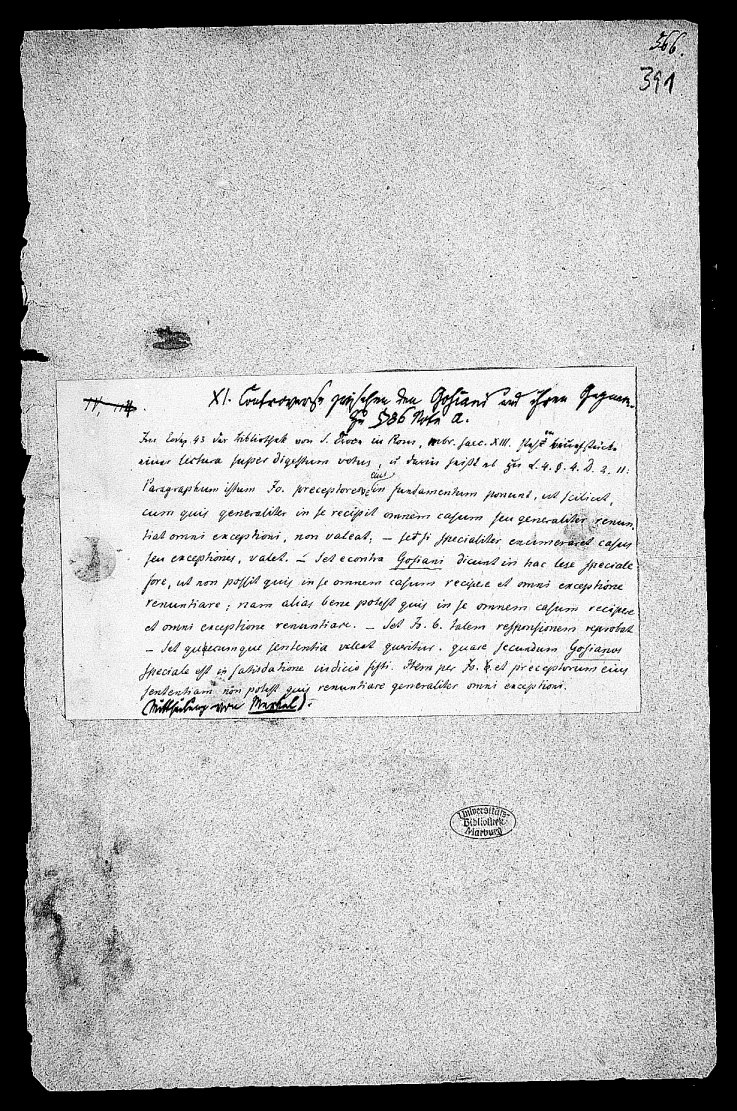 366.
391
XI. Controverse zwischen den Gosiani und ihren Gegnern.
Zu § 86 Note a.
Im Codex 43 der Bibliothek von S. Croce in Rom, mbr. saec. XIII. steht ein Bruchstück
einer lectura super digestum vetus, u darin heißt es zu L. 4. §. 4. D. 2. 11:
Paragraphum istum Jo. preceptores eius in fundamentum ponunt, ut scilicet,
cum quis generaliter in se recipit omnem casum seu generaliter renun-
tiat omni exceptioni, non valeat; – set si specialiter enumeraret casus
seu exceptiones, valet. – Set econtra Gosiani dicunt in hac lege speciale
fore, ut non possit quis in se omnem casum recipere et omni exceptione
renuntiare; nam alias bene potest quis in se omnem casum recipere
et omni exceptione renuntiare. – Set Jo. b. talem responsionem reprobat
– Set quecumque sententia valeat queritur. quare secundum Gosianos
speciale est in satisdatione iudicio sisti. Item per Jo. b. et preceptorum eius
sententiam non potest quis renuntiare generaliter omni exceptioni.
(Mittheilung von Merkel).
Universitäts-
Bibliothek
Marburg